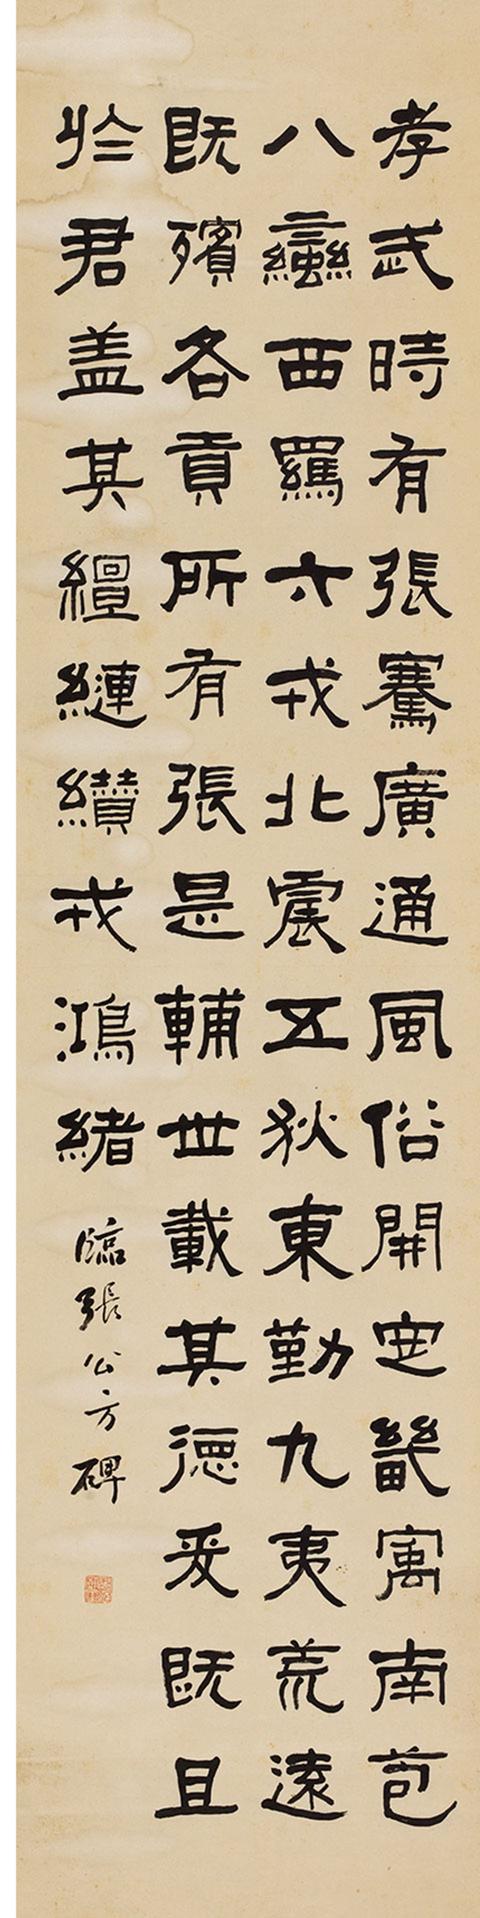 孝武時有張騫廣通風俗開定畿寓南苞
八蠻西羈六戎北震五狄東勤九夷荒遠
既殯各貢所有張是輔世載其德爰既且
於君盖其繵縺纘戎鴻緒
臨張公方碑